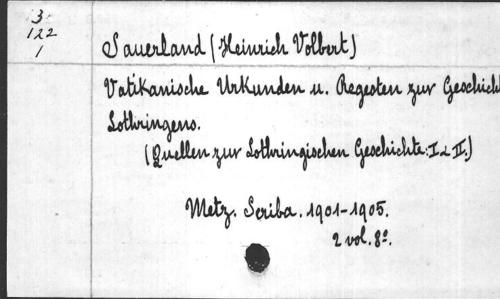 3
122
1
Sauerland (Heinrich Volbert)
Vatikanische Urkunden u. Regesten zur Geschicht
Lothringens.
(Quellen zur Lothringischen Geschichte: I & II.)
Metz. Scriba. 1901-1905.
2 vol. 8º.